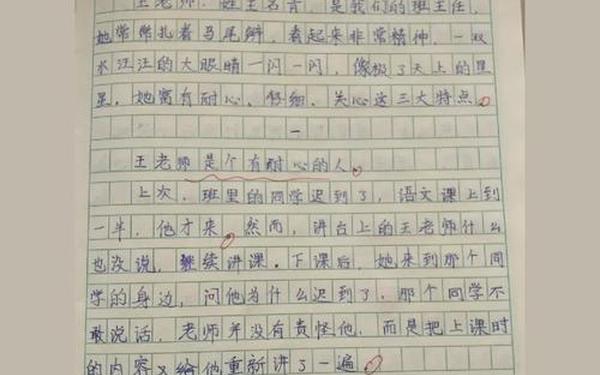 王老师，姓王名青，是我们的班主任，
她常常扎着马尾辫，看起来非常精神，一双
水汪汪的大眼睛一闪一闪，像极了天上的星
星，她富有耐心、仔细、关心这三大特点。
一
王老师是个有耐心的人。
上次，班里的同学迟到了，语文课上到
一半，他才来。然而，讲台上的王老师什么
也没说，继续讲课。下课后，她来到那个同
学的身边，问他为什么迟到了，那个同学不
敢说话，老师并没有责怪他，而是把上课时
的内容又给他重新讲了一遍。